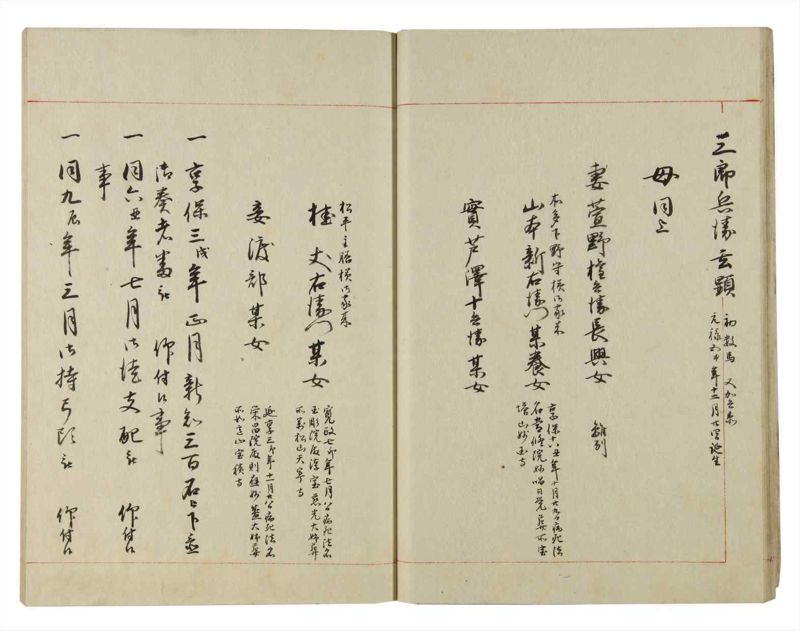 三郎兵衛玄顕
初数馬 又加兵衛
元禄五申年十二月十四日誕生
母同上
妻萱野権兵衛長興女 離別
本多下野守様御家来
山本新右衛門某養女
享保十六亥年十月十九日病死法
名
院
葬所
山妙
寺
實芦澤十兵衛某女
松平主膳様御家来
桂丈右衛門某女
寛政七卯年七月八日病死法名
玉彫院
大姉葬
所萬松山天寧寺
妾渡部某女
延享三
年十一月九日病死法名
栄昌院
大姉葬
所
山宝積寺
一 享保三戌年正月新知三百石被下置
御奏者番被 仰付候事
一 同六丑年七月御
支配被 仰付候
事
一 同九辰年三月御持弓頭被 仰付候